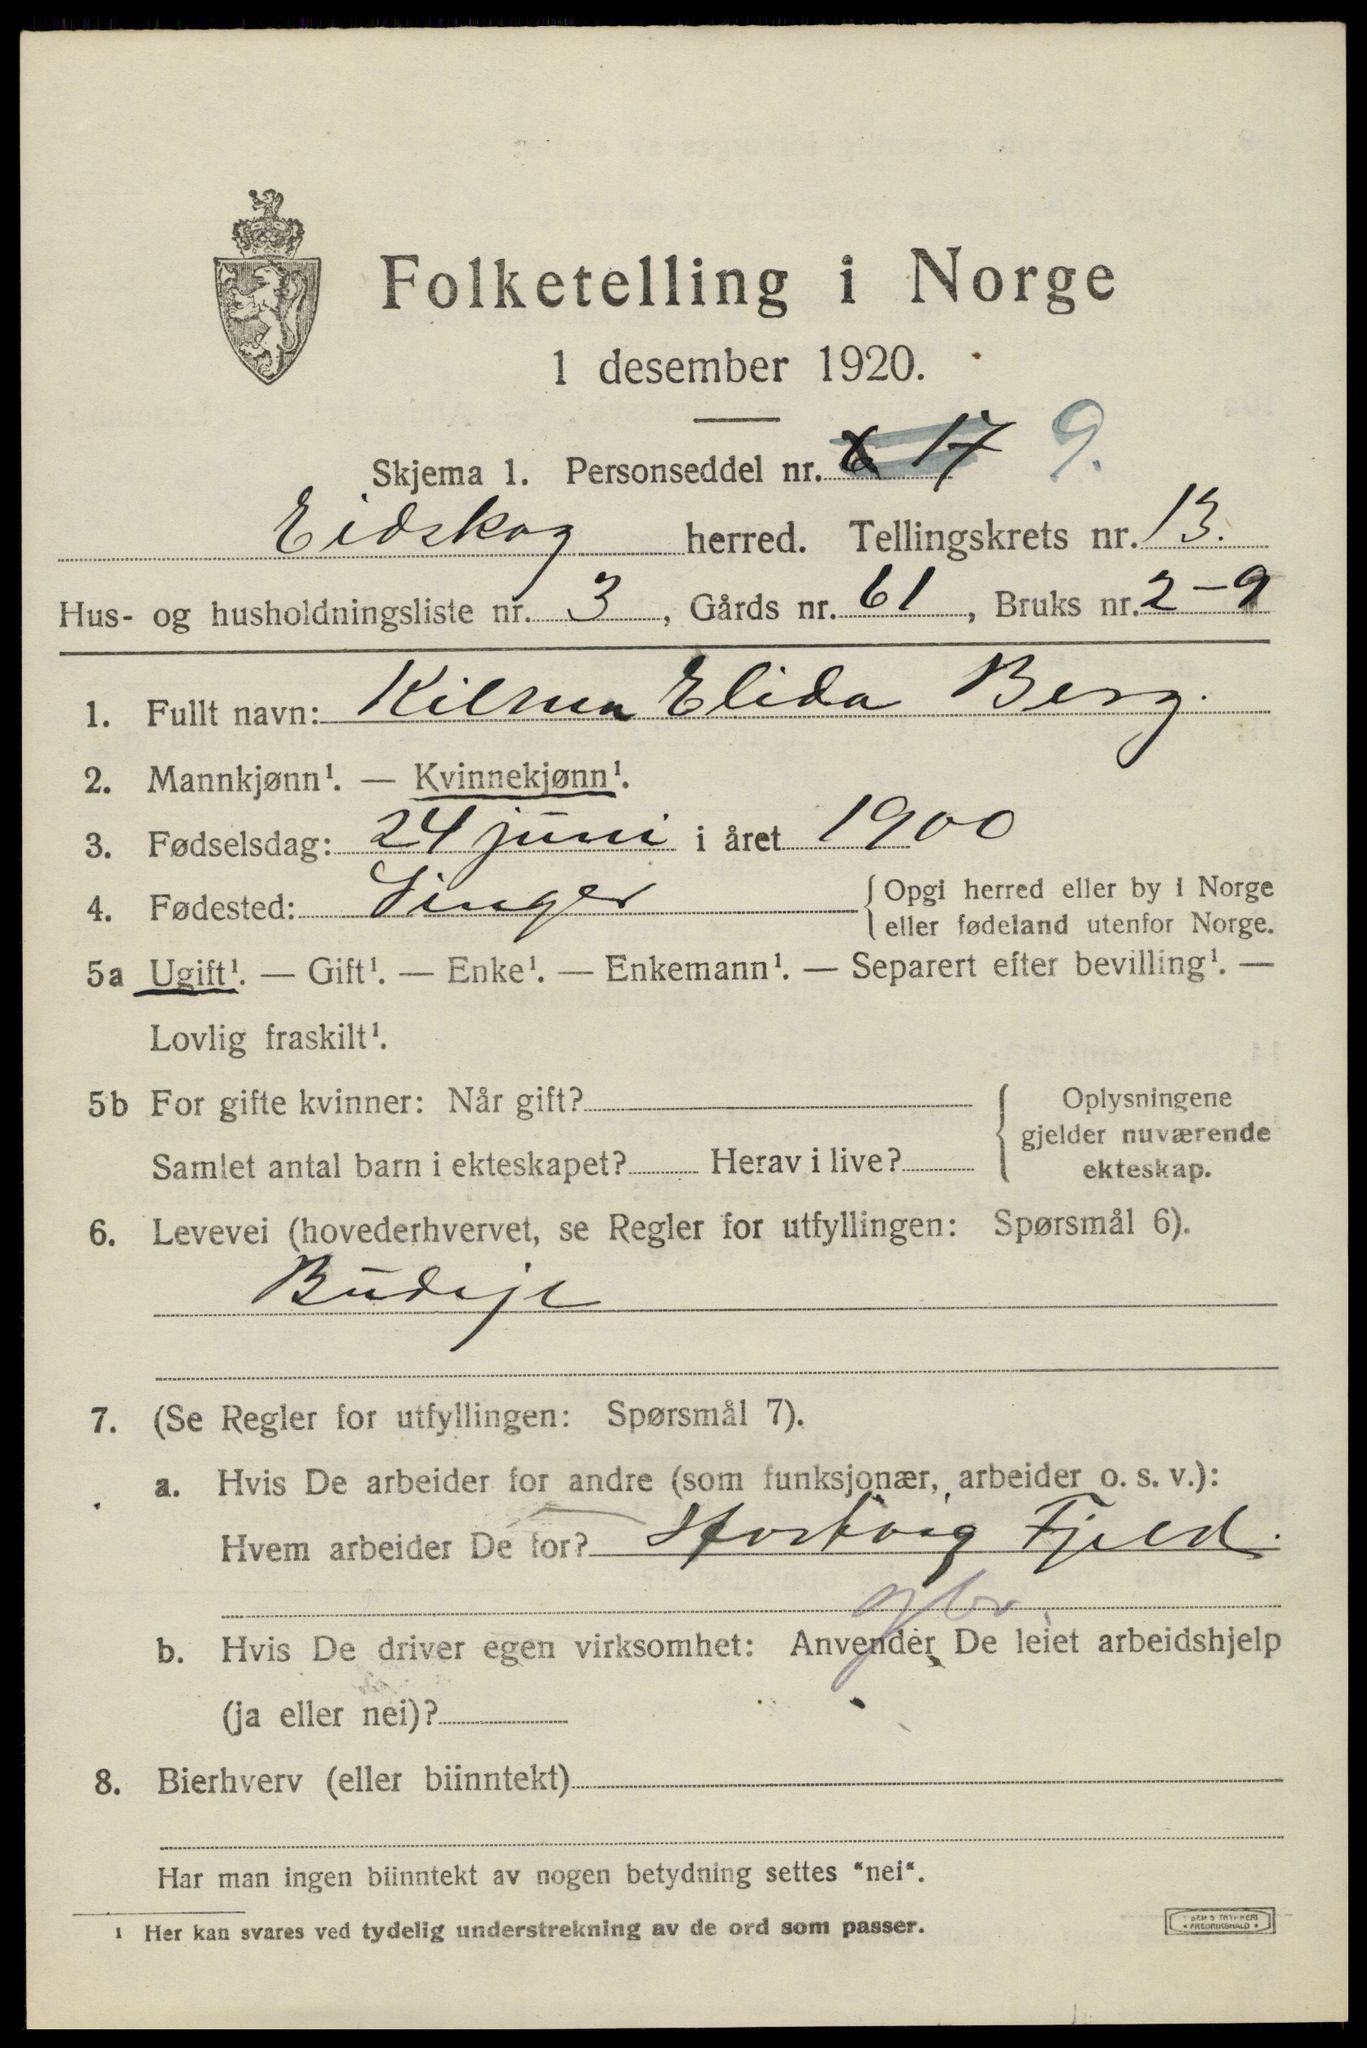 Folketelling i Norge
1 desember 1920.
Skjema 1. Personseddel nr. 6 17 9.
Eidskog herred. Tellingskrets nr. 13.
Hus- og husholdningsliste nr. 3, Gårds nr. 61, Bruks nr. 2-9
1. Fullt navn: Elida Berg.
2. Mannkjønn¹. — Kvinnekjønn¹.
3. Fødselsdag: 24 juni i året 1900
4. Fødested: Vinger { Opgi herred eller by i Norge
eller fødeland utenfor Norge.
5a Ugift¹. — Gift¹. — Enke¹. — Enkemann¹. — Separert efter bevilling¹. —
Lovlig fraskilt¹.
5b For gifte kvinner: Når gift? { Oplysningene
gjelder nuværende
Samlet antal barn i ekteskapet? Herav i live?
ekteskap.
6. Levevei (hovederhvervet, se Regler for utfyllingen: Spørsmål 6).
Budeje
7. (Se Regler for utfyllingen: Spørsmål 7).
a. Hvis De arbeider for andre (som funksjonær, arbeider o. s. v.):
Hvem arbeider De for? Fjeld.
gbr.
b. Hvis De driver egen virksomhet: Anvender De leiet arbeidshjelp
(ja eller nei)?
8. Bierhverv (eller biinntekt)
Har man ingen biinntekt av nogen betydning settes "nei".
¹ Her kan svares ved tydelig understrekning av de ord som passer.
FREDRIKSHALD